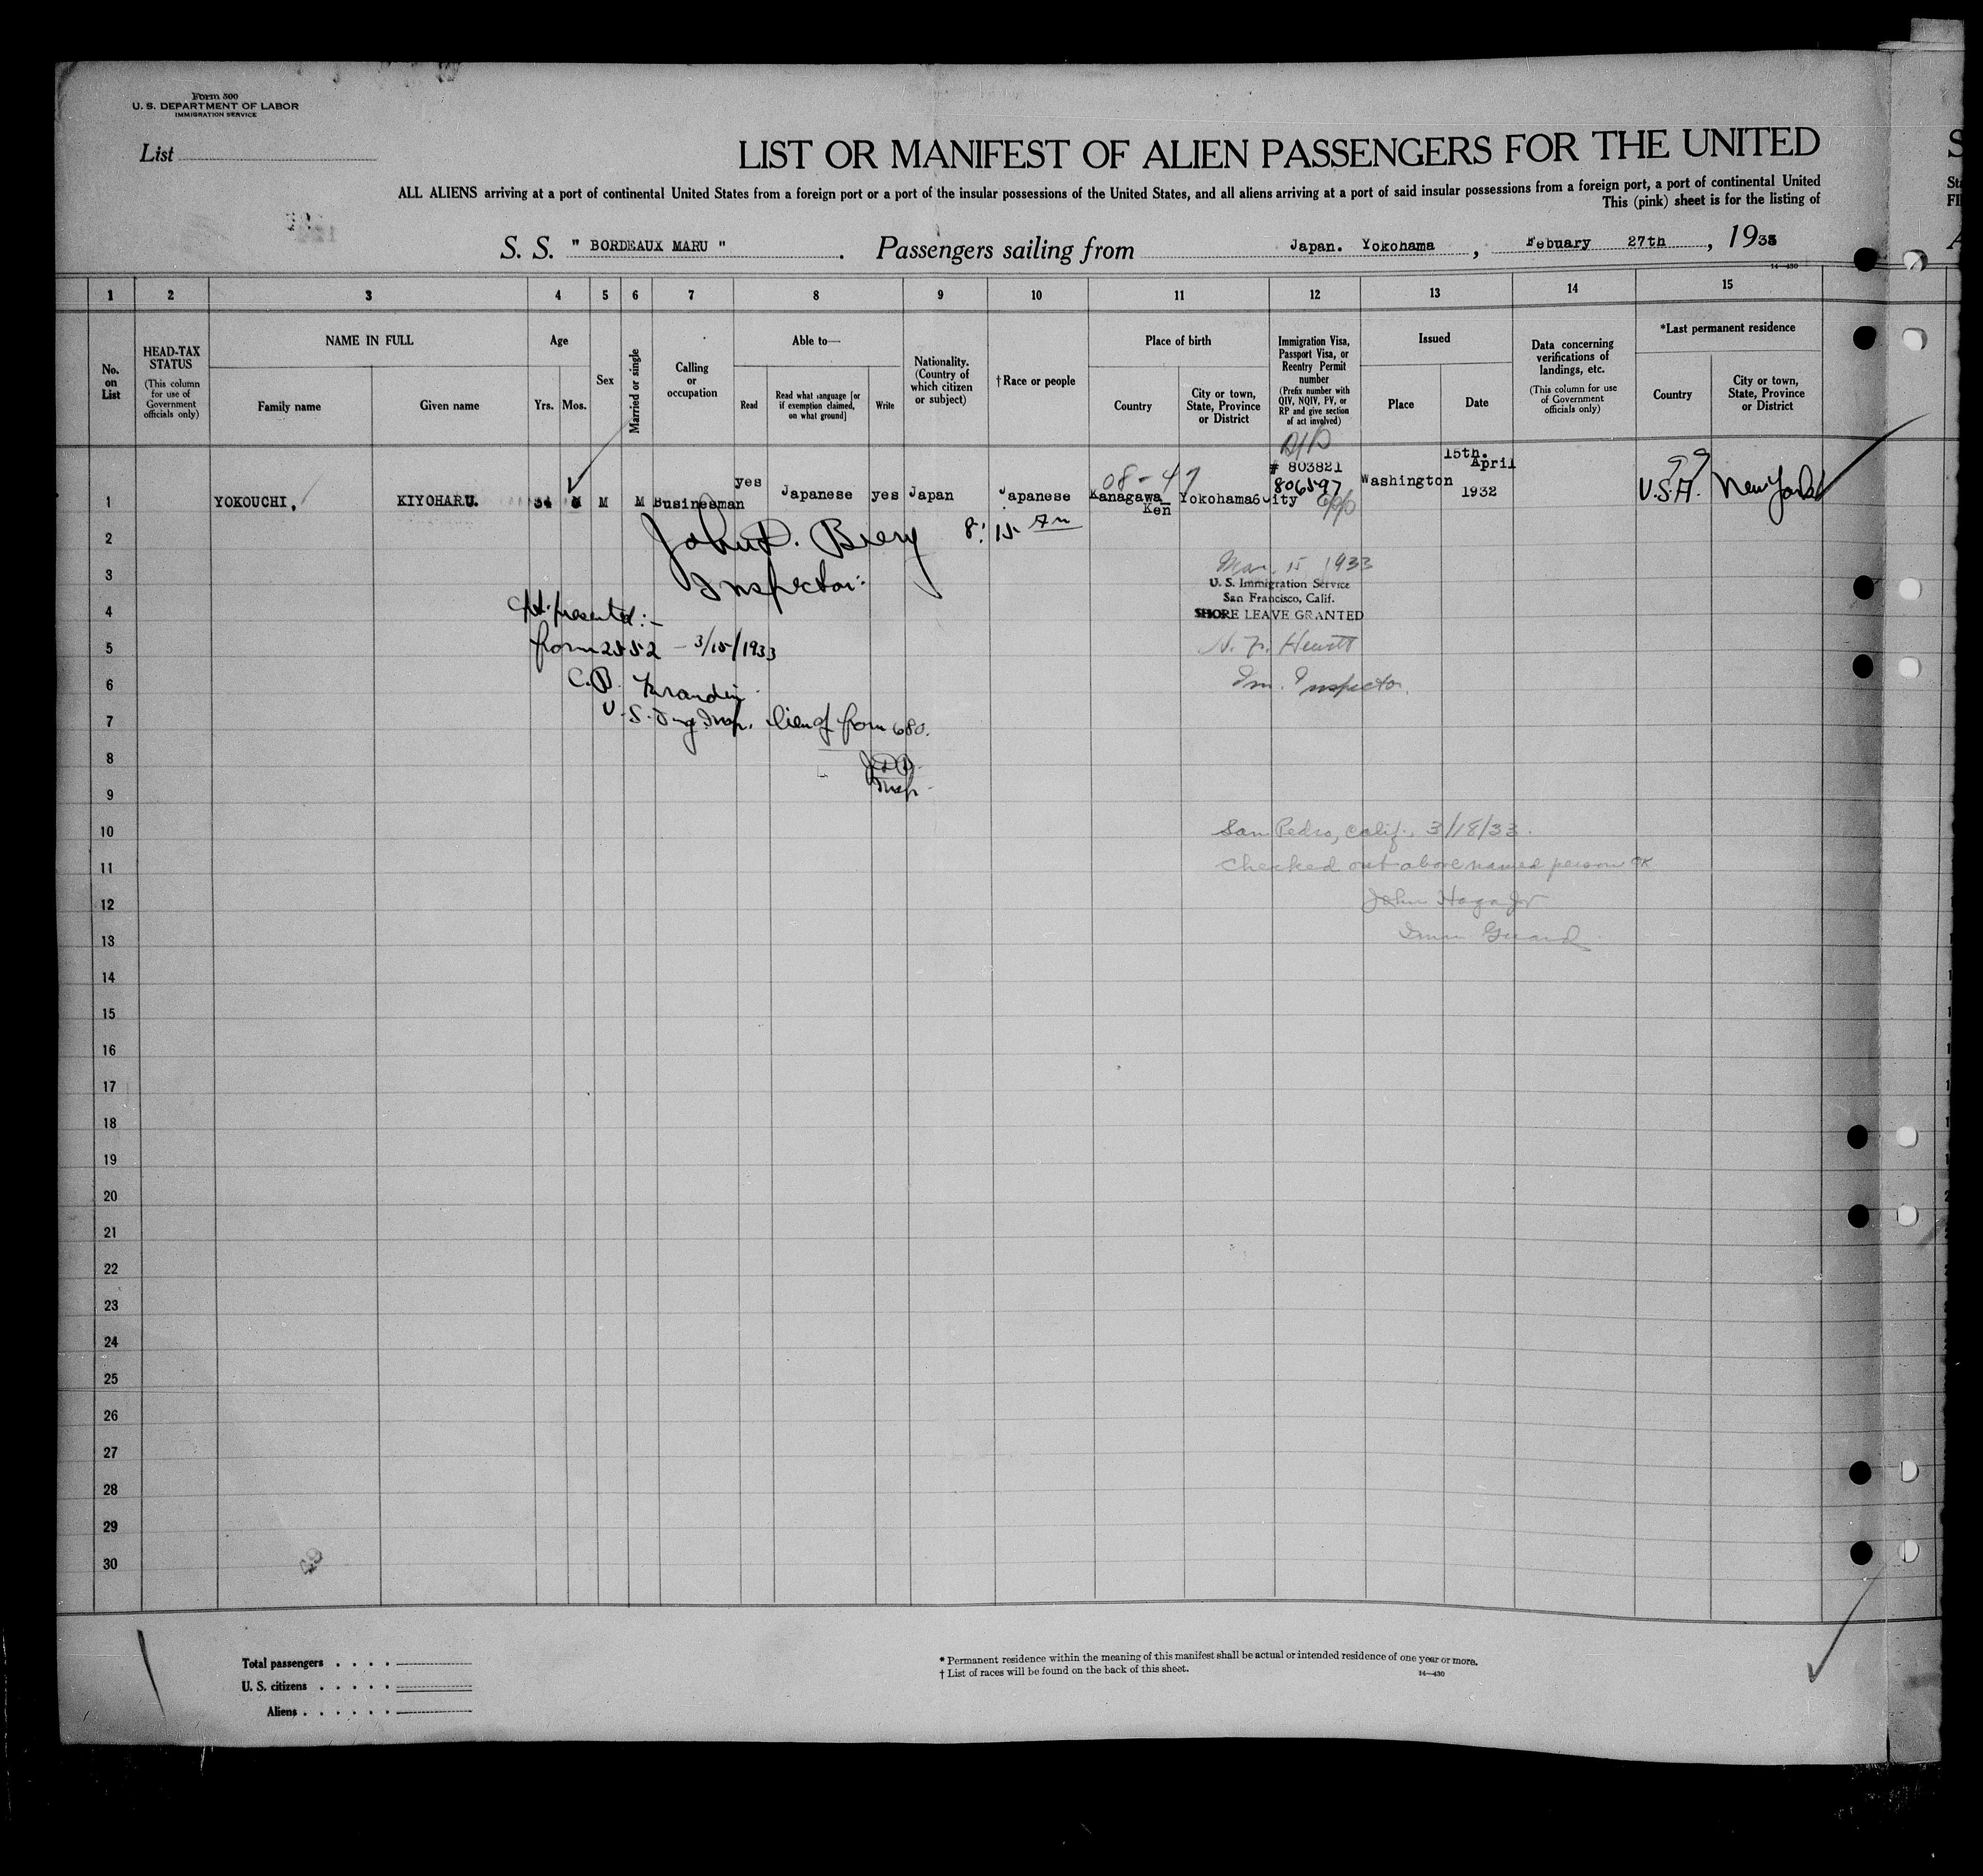 Form 500
U. S. DEPARTMENT OF LABOR
IMMIGRATION SERVICE
List
LIST OR MANIFEST OF ALIEN PASSENGERS FOR THE UNITED
ALL ALIENS arriving at a port of continental United States from a foreign port or a port of the insular possessions of the United States, and all aliens arriving at a port of said insular possessions from a foreign port, a port of continental United
This (pink) sheet is for the listing of
S. S. " BORDEAUX MARU " . Passengers sailing from Japan. Yokohama , Febuary 27th , 1933
14—430
1 2 3 4 5 6 7 8 9 10 11 12 13 14 15
No. on List
HEAD-TAX STATUS
(This column for use of Government officials only)
NAME IN FULL
Family name
Given name
Age
Yrs. Mos.
Sex
Married or single
Calling or occupation
Able to—
Read
Read what language [or if exemption claimed, on what ground]
Write
Nationality. (Country of which citizen or subject)
†Race or people
Place of birth
Country
City or town, State, Province or District
Immigration Visa, Passport Visa, or Reentry Permit number
(Prefix number with QIV, NQIV, PV, or RP and give section of act involved)
Issued
Place
Date
Data concerning verifications of landings, etc.
(This column for use of Government officials only)
*Last permanent residence
Country
City or town, State, Province or District
08-47
99
1 YOKOUCHI, KIYOHARU. 34 M M Businesman yes Japanese yes Japan Japanese Kanagawa Ken Yokohama City # 803821 806597 Washington 15th. April 1932 U.S.A. New York
2 John D. Biery 8:15 AM
Inspector:
3 Mar. 15 1933
U. S. Immigration Service
San Francisco, Calif.
4 SHORE LEAVE GRANTED
presented:-
5 form 2552 - 3/15/1933
N. F. Hewitt
6 C.B.
Im. Inspector.
7 U.S. Img. Insp. lieu of form 680.
8 JDB
9 Insp.
10 San Pedro, Calif., 3/18/33.
11 Checked out above named person OK
12 John Haga Jr
13 Imm Guard
14
15
16
17
18
19
20
21
22
23
24
25
26
27
28
29
30
Total passengers
U. S. citizens
Aliens
* Permanent residence within the meaning of this manifest shall be actual or intended residence of one year or more.
† List of races will be found on the back of this sheet.
14—430